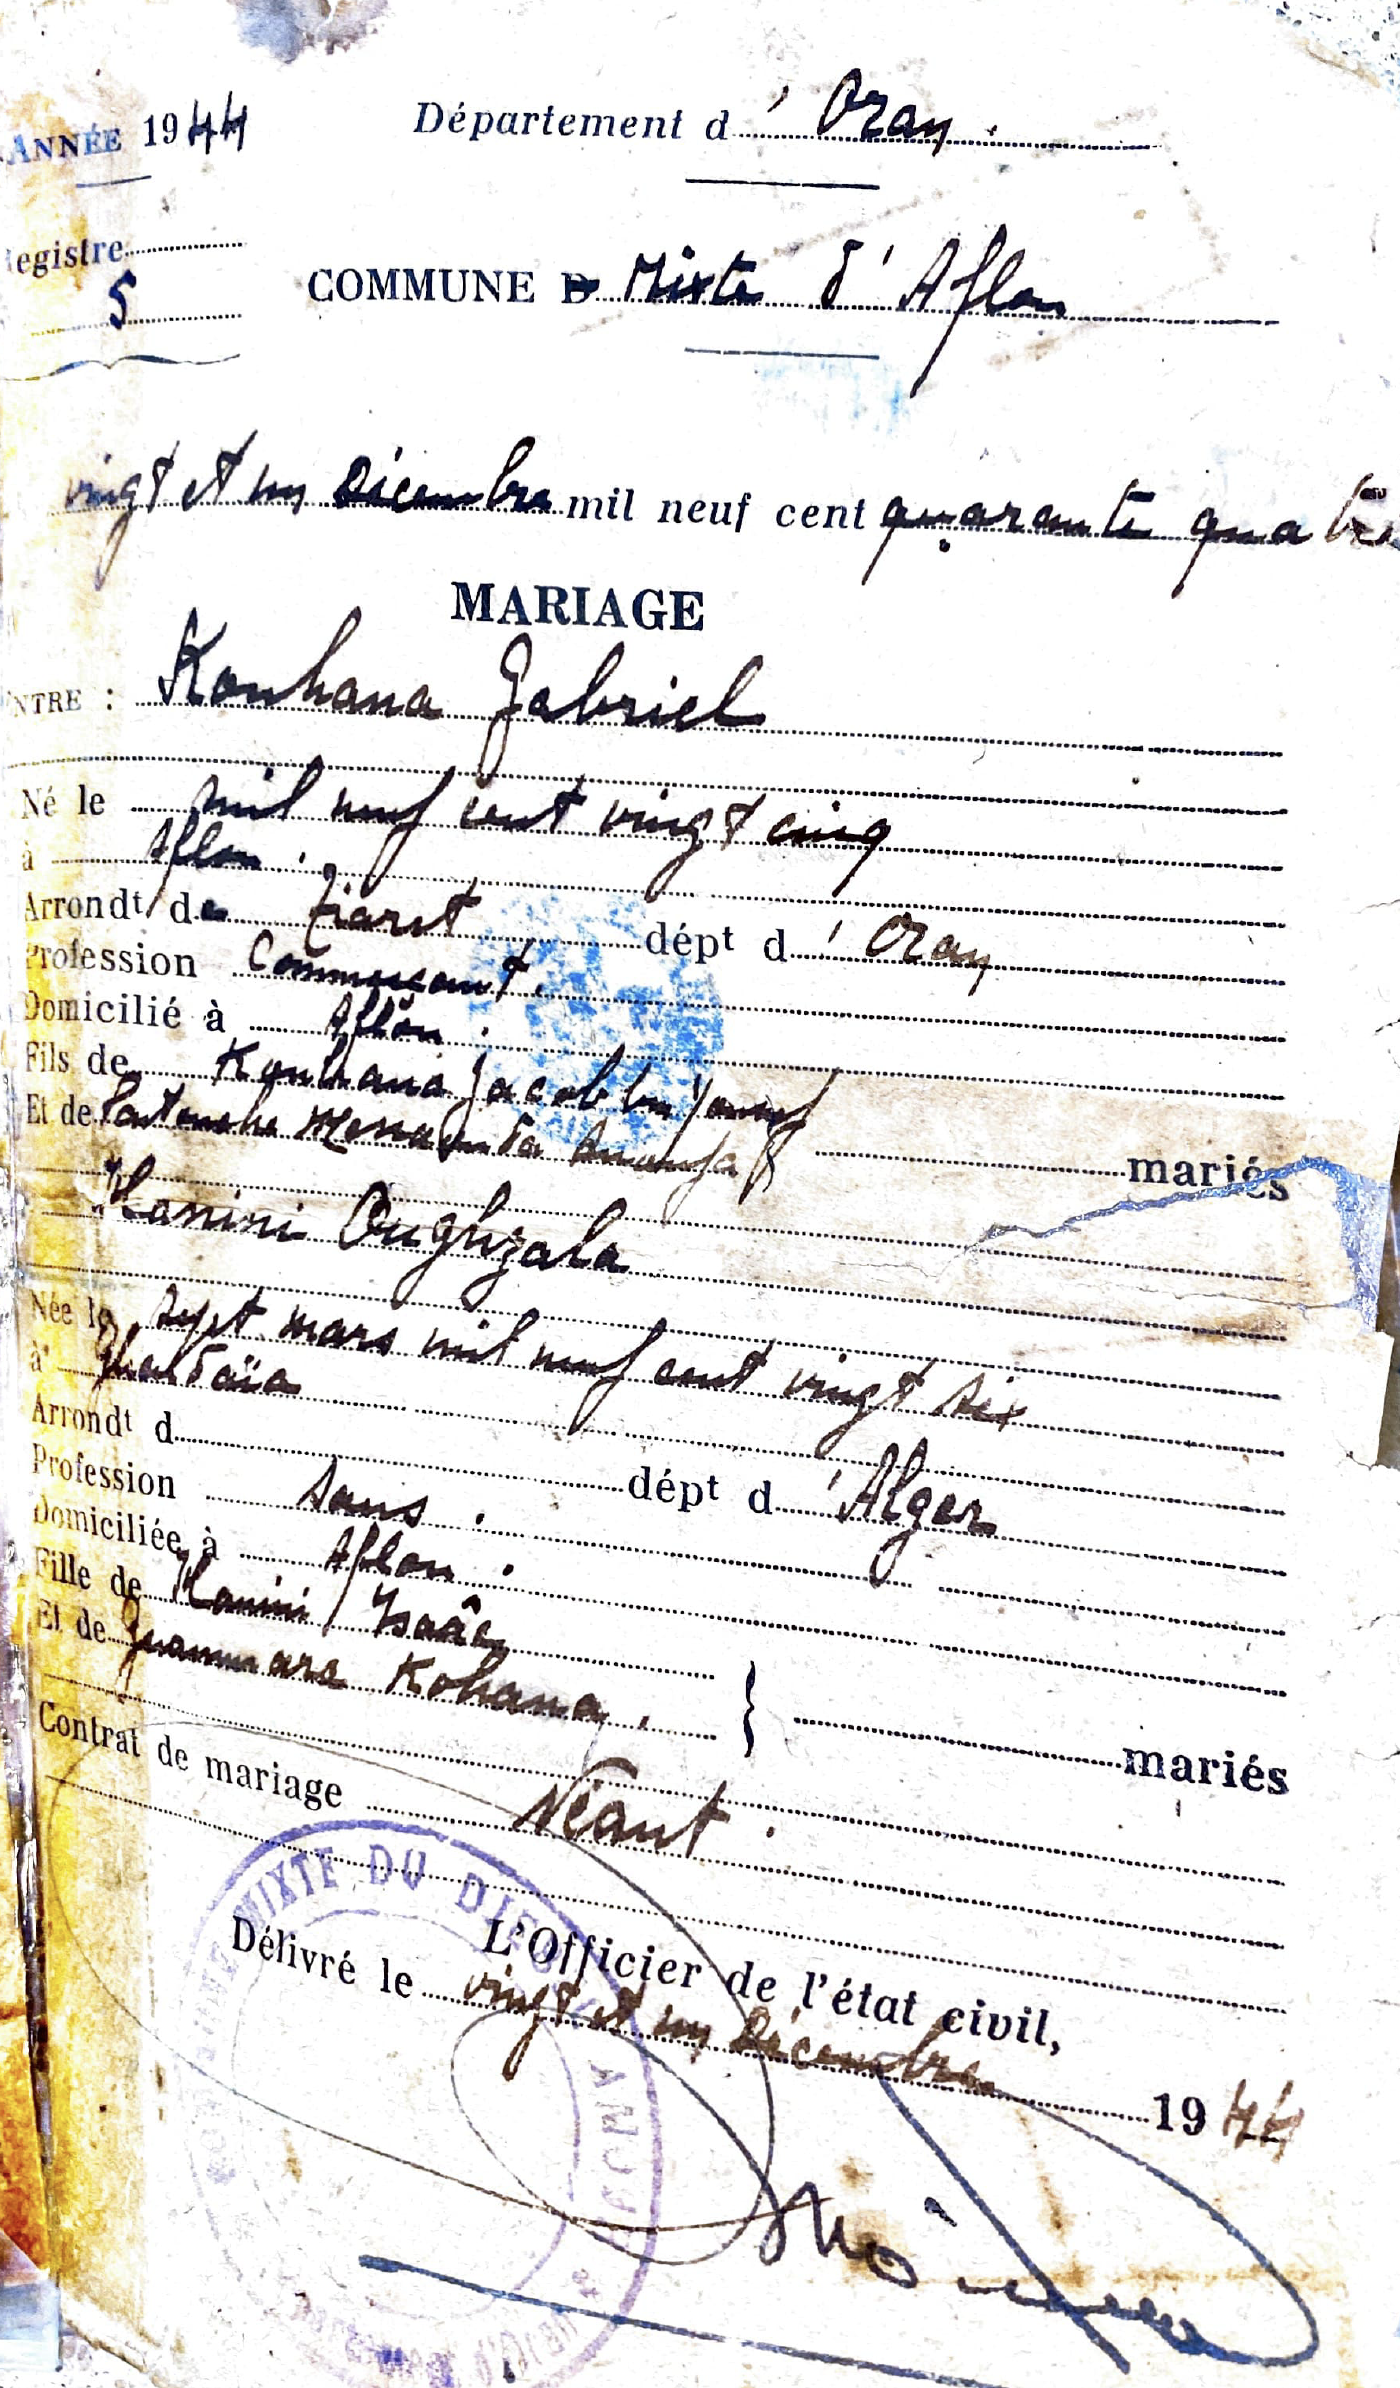 ANNÉE 1944
Département d' Oran.
egistre
5
COMMUNE D Mixte d' Aflou
vingt et un Décembre mil neuf cent quarante quatre
MARIAGE
NTRE : Kouhana Gabriel
Né le mil neuf cent vingt cinq
à Aflou.
Arrondt de Tiaret dépt d' Oran
Profession Commerçant.
Domicilié à Aflou.
Fils de Kouhana Jacob ben Youcef
Et de Messaouda mariés
Hanini Oughzala
Née le sept mars mil neuf cent vingt six
à Ghardaïa
Arrondt d dépt d' Alger
Profession sans.
Domiciliée à Aflou.
Fille de Hanini Isaâc
Et de Kohana. } mariés
Contrat de mariage Néant.
MIXTE DU DJEBEL
L'Officier de l'état civil,
Délivré le vingt et un Décembre 1944